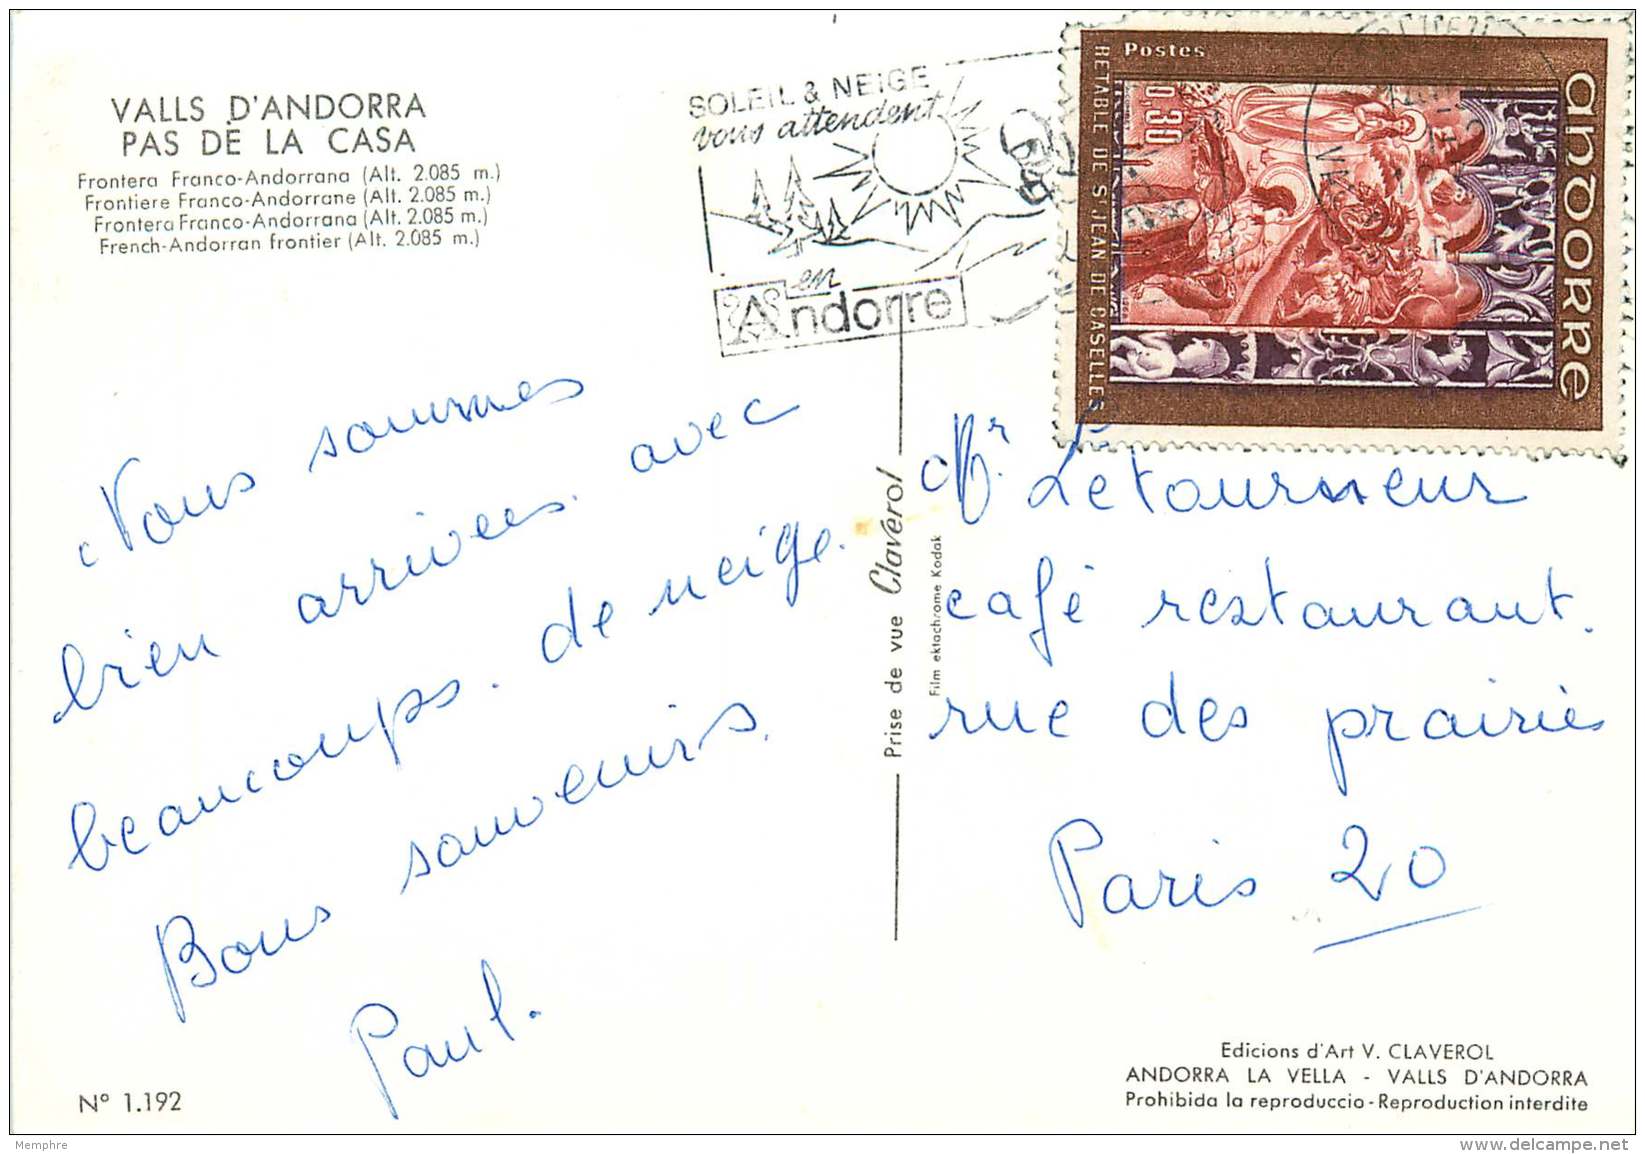 VALLS D'ANDORRA
PAS DE LA CASA
Frontera Franco-Andorrana (Alt. 2.085 m.)
Frontiere Franco-Andorrane (Alt. 2.085 m.)
Frontera Franco-Andorrana (Alt. 2.085 m.)
French-Andorran frontier (Alt. 2.085 m.)
SOLEIL & NEIGE
vous attendent!
en
Andorre
Postes
0,30
RETABLE DE St JEAN DE CASELLES
andorre
Nous sommes
bien arrivees. avec
beaucoups. de neige.
Bons souvenirs.
Paul.
Prise de vue Claverol
Film ektachrome Kodak
Mr Letourneur
café restaurant.
rue des prairies
Paris 20
Nº 1.192
Edicions d'Art V. CLAVEROL
ANDORRA LA VELLA - VALLS D'ANDORRA
Prohibida la reproduccio - Reproduction interdite
Memphre
www.delcampe.net